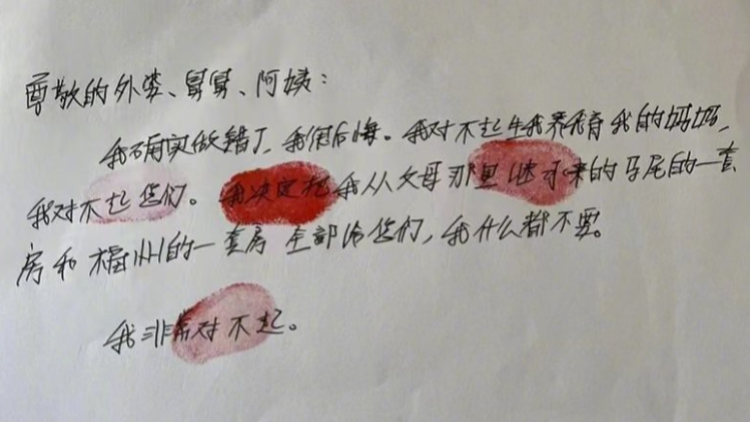 尊敬的外婆、舅舅、阿姨：
我确实做错了，我很后悔。我对不起生我养我育我的妈妈，
我对不起您们。我决定把我从父母那里继承来的马尾的一套
房和福州的一套房全部给您们，我什么都不要。
我非常对不起。